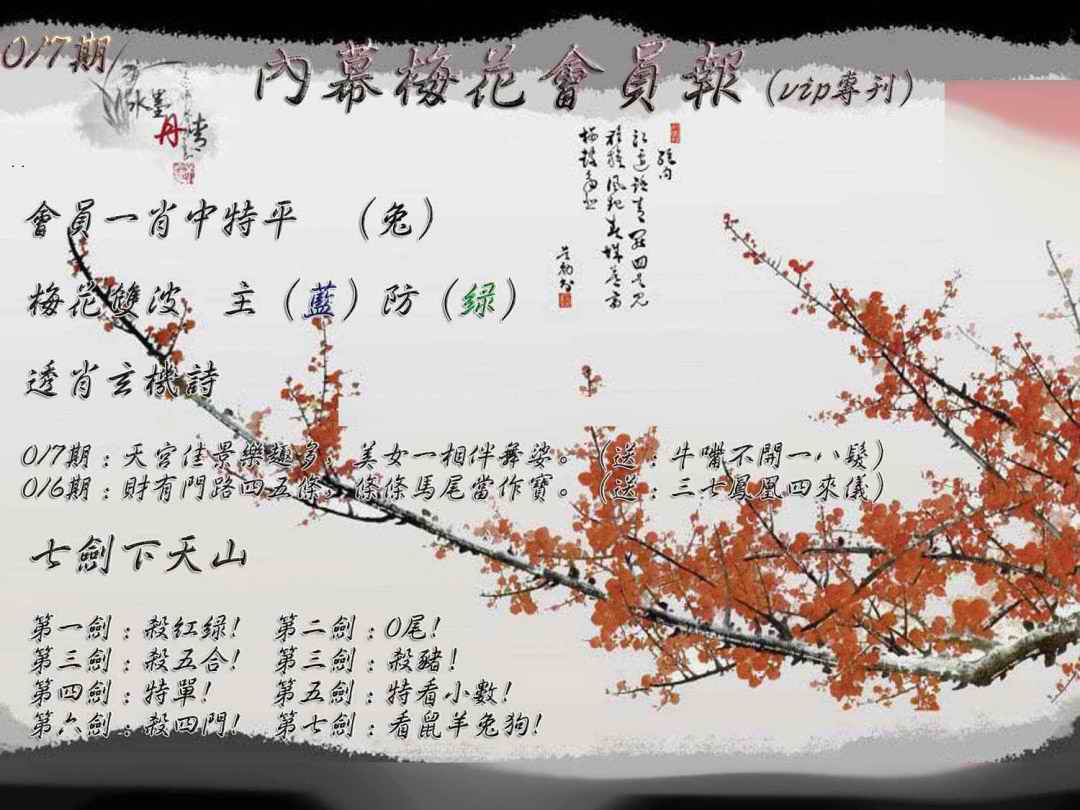 017期
內幕梅花會員報(vip專刊)
水墨
丹青
會員一肖中特平 (兔)
梅花雙波 主(藍)防(绿)
透肖玄機詩
017期:天宮佳景樂趣多,美女一相伴舞婆。(送:牛嘴不開一八髮)
016期:財有門路四五條,條條馬尾當作寶。(送:三七鳳凰四來儀)
七劍下天山
第一劍:殺紅绿! 第二劍:0尾!
第三劍:殺五合! 第三劍:殺豬!
第四劍:特單! 第五劍:特看小數!
第六劍:殺四門! 第七劍:看鼠羊兔狗!